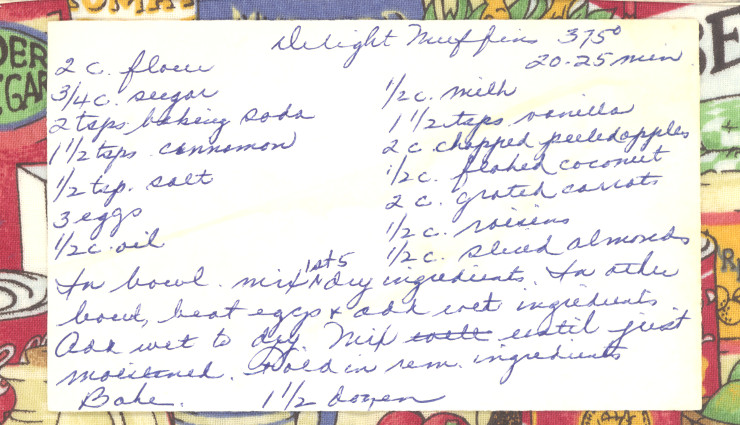 Delight Muffins 375°
20-25 min
2 c. flour
3/4 c. sugar
2 tsps baking soda
1 1/2 tsps cinnamon
1/2 tsp. salt
3 eggs
1/2 c. oil
1/2 c. milk
1 1/2 tsps. vanilla
2 c chopped peeled apples
1/2 c. flaked coconut
2 c. grated carrots
1/2 c. raisins
1/2 c. sliced almonds
In bowl. mix 1st 5 dry ingredients. In other
bowl, beat eggs & add wet ingredients
Add wet to dry. Mix well until just
moistened. Fold in rem. ingredients
Bake. 1 1/2 dozen
DER
EGAR